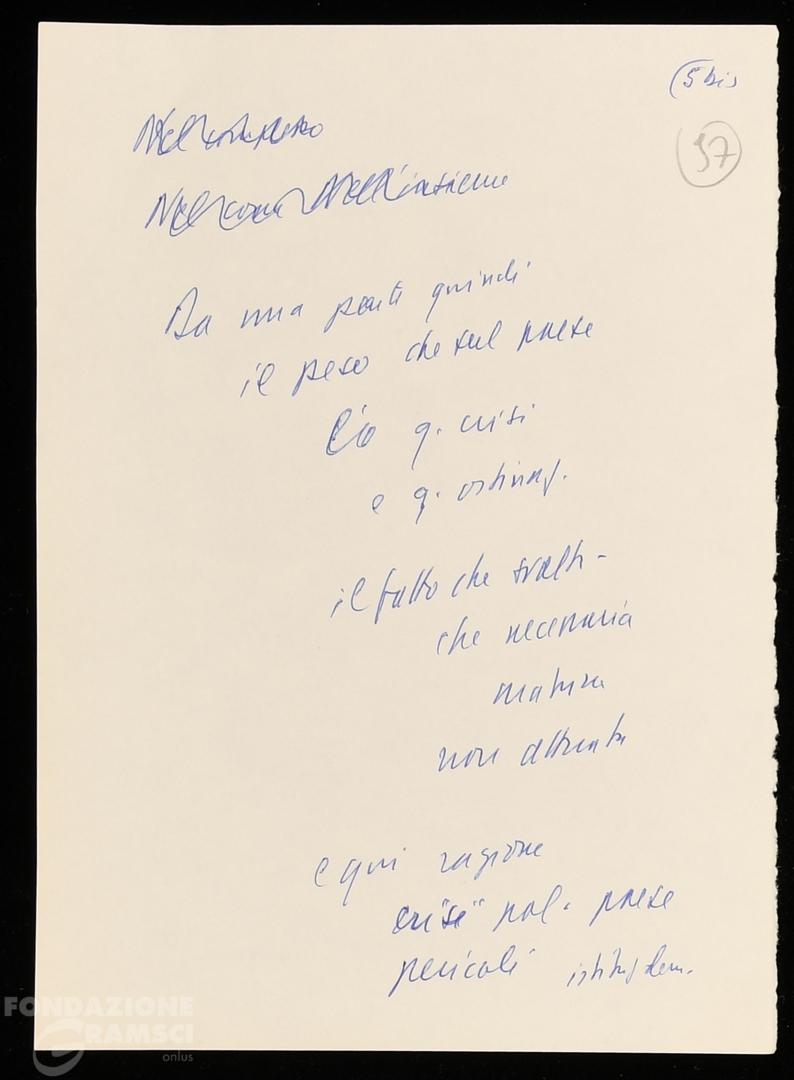 (5 bis
57
Nel complesso
Nel com Nell'insieme
Da una parte quindi
il peso che sul paese
q. crisi
e q. ostinaz.
il fatto che svolta -
che necessaria
matura
non attuata
e qui ragione
crisi pol. paese
pericoli istituz dem.
FONDAZIONE
GRAMSCI
onlus